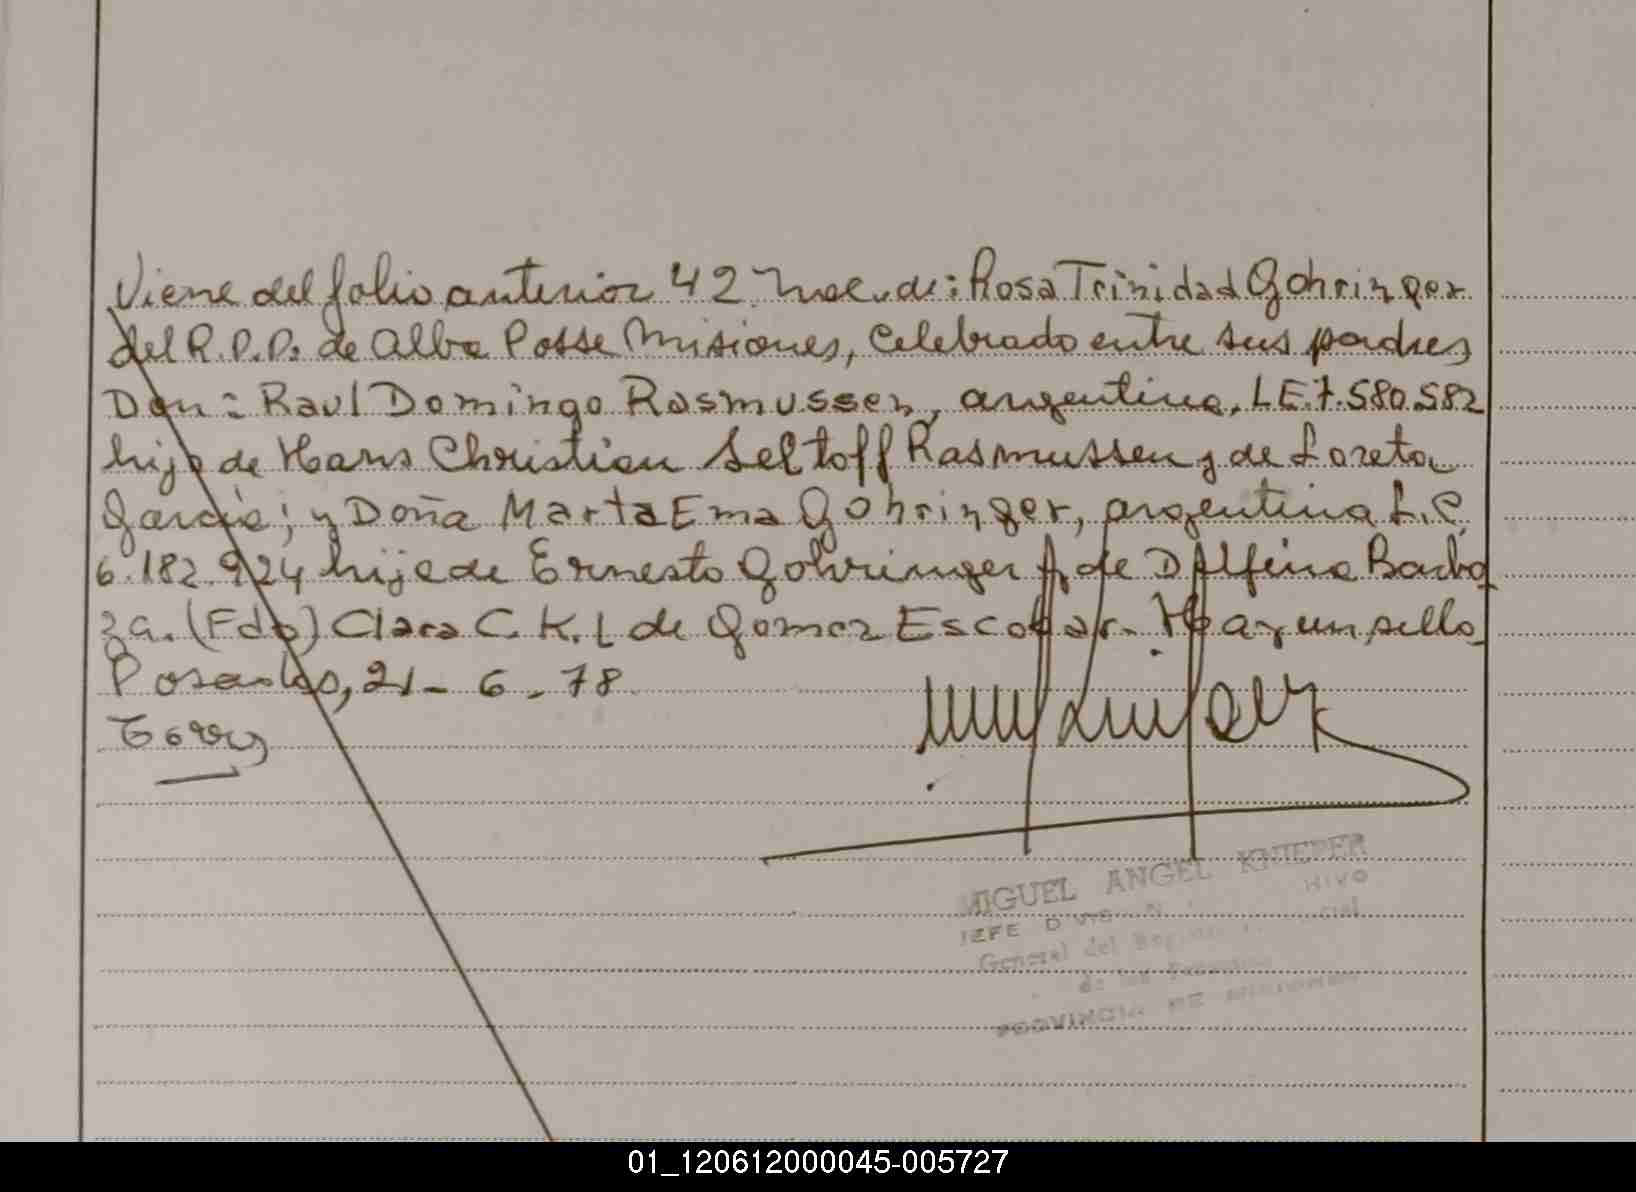 Viene del folio anterior 42 Nac. de: Rosa Trinidad Gohringer
del R.P.P. de Alba Posse Misiones, Celebrado entre sus padres
Don: Raul Domingo Rasmussen, argentino, L.E.7.580.582
hijo de Hans Christian Seltoff Rasmussen y de Loreto
Garcia; y Doña Marta Ema Gohringer, argentina L.C.
6.182.924 hija de Ernesto Gohringer y de Delfina Barbo
za. (Fdo) Clara C. K. L de Gomez Escobar. Hay un sello
Posadas, 21-6-78
MIGUEL ANGEL KNIEPER
JEFE
General del
de las
PROVINCIA DE MISIONES
01_120612000045-005727